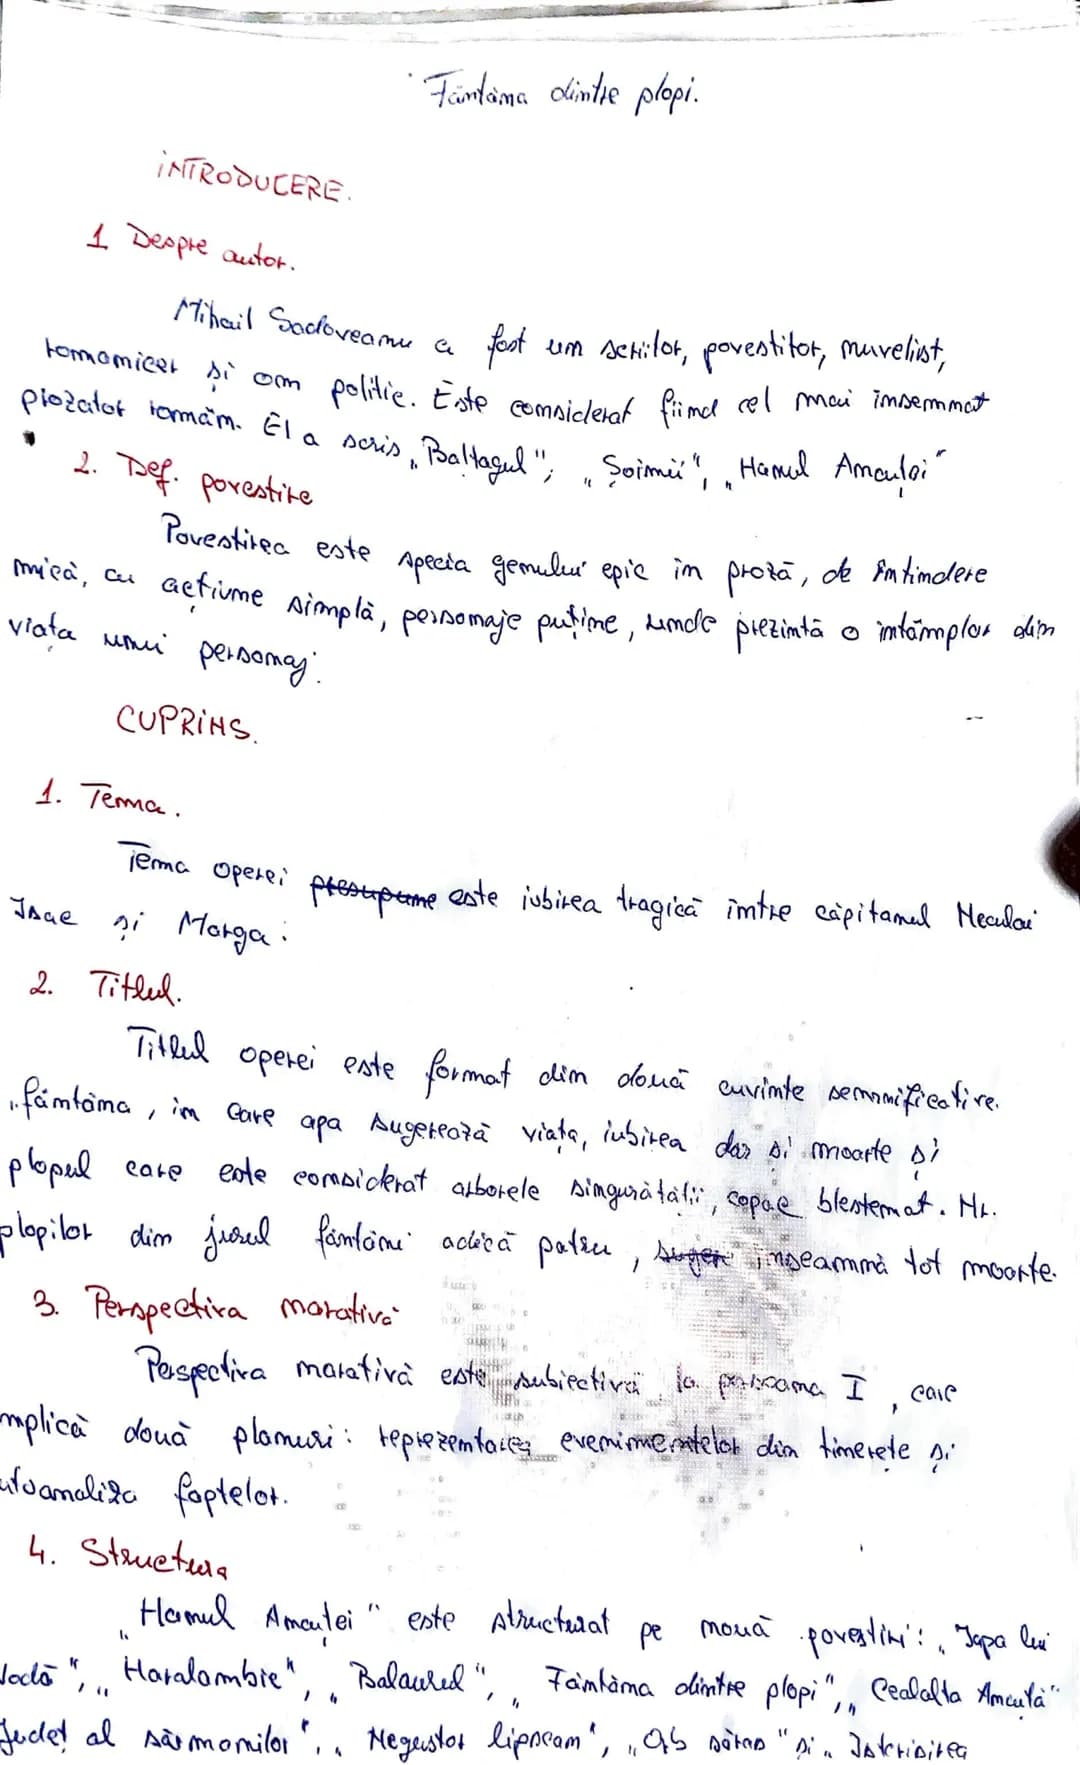 Fântâna dintre plopi.
INTRODUCERE.
1 Despre autor.
Mihail Sadoveanu a fost un scriitor, povestitor, nuvelist,
romancier și om politic. Este considerat fiind cel mai însemnat
prozator român. El a scris „Baltagul", „Șoimii", „Hanul Ancuței"
2. Def. povestire
Povestirea este specia genului epic în proză, de întindere
mică, cu acțiune simplă, personaje puține, unde prezintă o întâmplar din
viața unui personaj.
CUPRINS.
1. Tema.
Tema operei presupune este iubirea tragică între căpitanul Neculai
Isac și Marga.
2. Titlul.
Titlul operei este format din două cuvinte semnificative.
„fântâna, în care apa sugerează viața, iubirea dar și moarte și
plopul care este considerat arborele singurătății, copac blestemat. Nr.
plopilor din jurul fântâni adică patru, suger înseamnă tot moarte.
3. Perspectiva narativă
Perspectiva narativă este subiectivă la persoana I, care
mplică două planuri: reprezentarea evenimentelor din tinerețe și
utoanaliza faptelor.
4. Structura
„Hanul Ancuței" este structurat pe nouă povestiri: „Iapa lui
Vodă", „Haralambie", „Balaurul", „Fântâna dintre plopi", „Cealalta Ancuță"
Județ al sărmanilor", „Negustor lipscan", „Orb sărac" și „Istorisirea